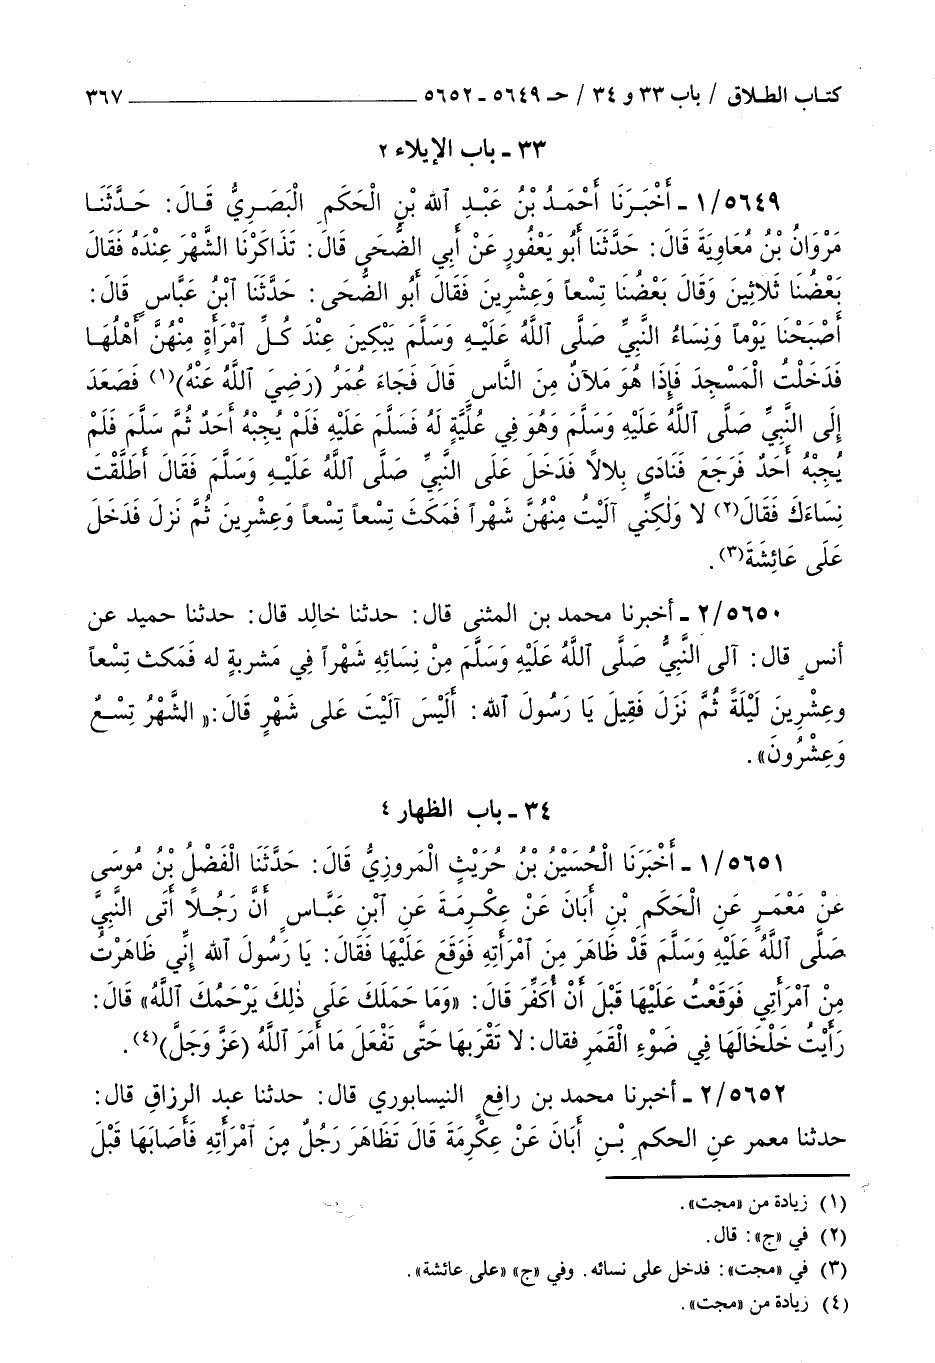 كتاب الطلاق / باب ٣٣ و ٣٤ / حـ ٥٦٤٩ ـ ٥٦٥٢ ــــــــــــــــــــ ٣٦٧
٣٣ ـ باب الإيلاء ٢
١/٥٦٤٩ ـ أَخْبَرَنَا أَحْمَدُ بْنُ عَبْدِ اللهِ بْنِ الْحَكَمِ الْبَصَرِيُّ قَالَ: حَدَّثَنَا
مَرْوَانُ بْنُ مُعَاوِيَةَ قَالَ: حَدَّثَنَا أَبُو يَعْفُورٍ عَنْ أَبِي الضُّحَى قَالَ: تَذَاكَرْنَا الشَّهْرَ عِنْدَهُ فَقَالَ
بَعْضُنَا ثَلَاثِينَ وَقَالَ بَعْضُنَا تِسْعاً وَعِشْرِينَ فَقَالَ أَبُو الضُّحَى: حَدَّثَنَا ٱبْنُ عَبَّاسٍ قَالَ:
أَصْبَحْنَا يَوْماً وَنِسَاءُ النَّبِيِّ صَلَّى ٱللَّهُ عَلَيْهِ وَسَلَّمَ يَبْكِينَ عِنْدَ كُلِّ ٱمْرَأَةٍ مِنْهُنَّ أَهْلُهَا
فَدَخَلْتُ الْمَسْجِدَ فَإِذَا هُوَ مَلآنٌ مِنَ النَّاسِ قَالَ فَجَاءَ عُمَرُ (رَضِيَ ٱللَّهُ عَنْهُ)(١) فَصَعَدَ
إِلَى النَّبِيِّ صَلَّى ٱللَّهُ عَلَيْهِ وَسَلَّمَ وَهُوَ فِي عُلِّيَّةٍ لَهُ فَسَلَّمَ عَلَيْهِ فَلَمْ يُجِبْهُ أَحَدٌ ثُمَّ سَلَّمَ فَلَمْ
يُجِبْهُ أَحَدٌ فَرَجَعَ فَنَادَى بِلالاً فَدَخَلَ عَلَى النَّبِيِّ صَلَّى ٱللَّهُ عَلَيْهِ وَسَلَّمَ فَقَالَ أَطَلَّقْتَ
نِسَاءَكَ فَقَالَ(٢) لا وَلٰكِنِّي آلَيْتُ مِنْهُنَّ شَهْراً فَمَكَثَ تِسْعاً تِسْعاً وَعِشْرِينَ ثُمَّ نَزَلَ فَدَخَلَ
عَلَى عَائِشَةَ(٣).
٢/٥٦٥٠ ـ أخبرنا محمد بن المثنى قال: حدثنا خالد قال: حدثنا حميد عن
أنسٍ قال: آلى النَّبِيُّ صَلَّى ٱللَّهُ عَلَيْهِ وَسَلَّمَ مِنْ نِسَائِهِ شَهْراً فِي مَشربةٍ له فَمَكث تِسْعاً
وعِشْرِينَ لَيْلَةً ثُمَّ نَزَلَ فَقِيلَ يَا رَسُولَ الله: أَلَيْسَ آلَيْتَ عَلى شَهْرٍ قَالَ:«الشَّهْرُ تِسْعٌ
وَعِشْرُونَ».
٣٤ ـ باب الظهار ٤
١/٥٦٥١ ـ أَخْبَرَنَا الْحُسَيْنُ بْنُ حُرَيْثٍ الْمَروزِيُّ قَالَ: حَدَّثَنَا الْفَضْلُ بْنُ مُوسَى
عَنْ مَعْمَرٍ عَنِ الْحَكَمِ بْنِ أَبَانَ عَنْ عِكْرِمَةَ عَنِ ٱبْنِ عَبَّاسٍ أَنَّ رَجُلاً أَتَى النَّبِيَّ
صَلَّى ٱللَّهُ عَلَيْهِ وَسَلَّمَ قَدْ ظَاهَرَ مِنَ ٱمْرَأَتِهِ فَوَقَعَ عَلَيْهَا فَقَالَ: يَا رَسُولَ اللهِ إِنِّي ظَاهَرْتُ
مِنْ ٱمْرَأَتِي فَوَقَعْتُ عَلَيْهَا قَبْلَ أَنْ أُكَفِّرَ قَالَ: «وَمَا حَمَلَكَ عَلَى ذٰلِكَ يَرْحَمُكَ ٱللَّهُ» قَالَ:
رَأَيْتُ خَلْخَالَهَا فِي ضَوْءِ الْقَمَرِ فقال: لا تَقْرَبها حَتَّى تَفْعَلَ مَا أَمَرَ ٱللَّهُ (عَزَّ وَجَلَّ)(٤).
٢/٥٦٥٢ ـ أخبرنا محمد بن رافعٍ النيسابوري قال: حدثنا عبد الرزاقِ قال:
حدثنا معمر عنِ الحكمِ بْنِ أَبَانَ عَنْ عِكْرِمَةَ قَالَ تَظَاهَرَ رَجُلٌ مِنَ ٱمْرَأَتِهِ فَأَصَابَهَا قَبْلَ
(١) زيادة من «مجت».
(٢) في «ج»: قال.
(٣) في «مجت»: فدخل على نسائه. وفي «ج» «على عائشة».
(٤) زيادة من «مجت».